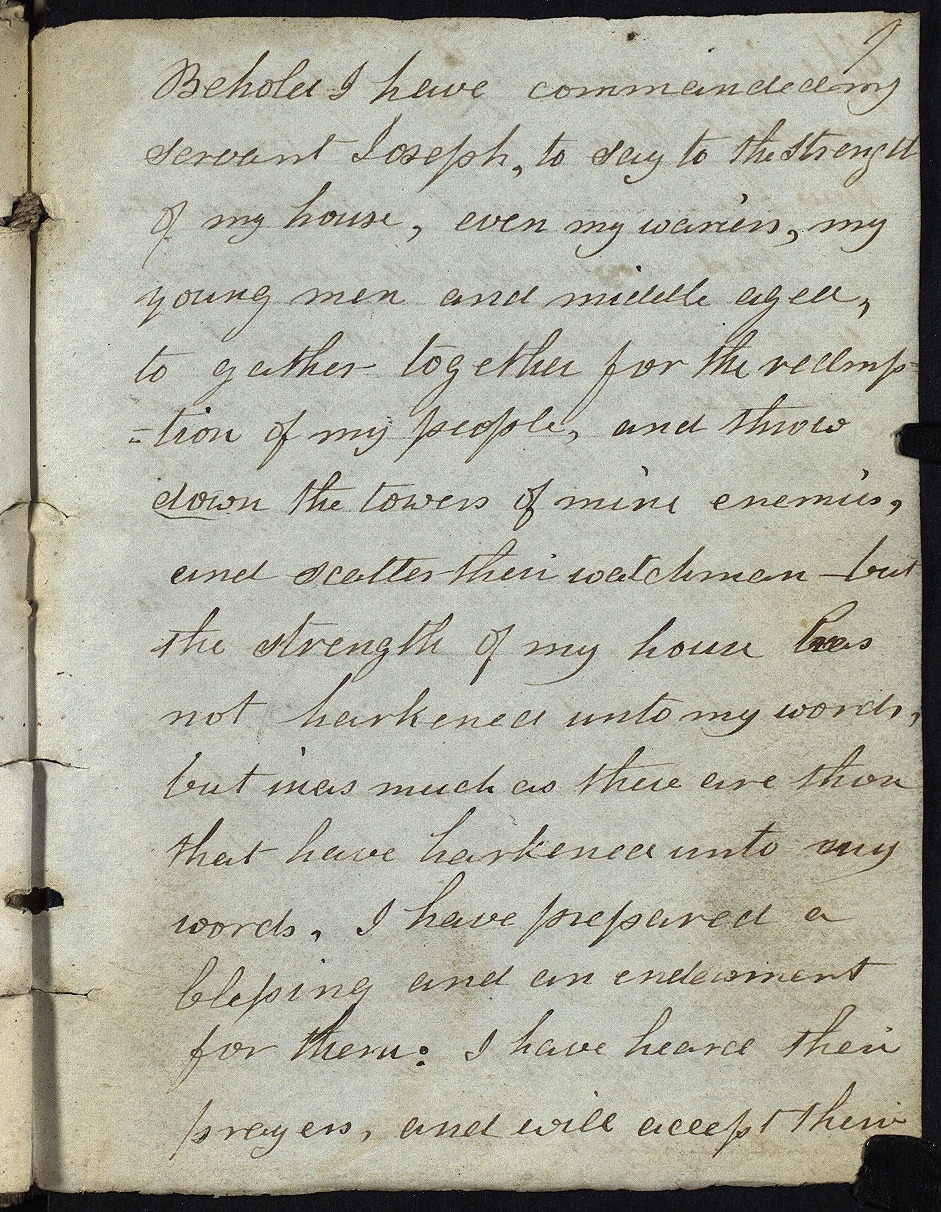 9
Behold I have commanded my
servant Joseph, to say to the strength
of my house, even my wariers, my
young men and middle aged,
to gather together for the redemp=
=tion of my people, and throw
down the towers of mine enemies,
and scatter their watchman - but
the strength of my house has
not harkened unto my words,
but inas much as there are those
that have harkened unto my
words, I have prepared a
blessing and an endowment
for them: I have heard their
prayers, and will accept their